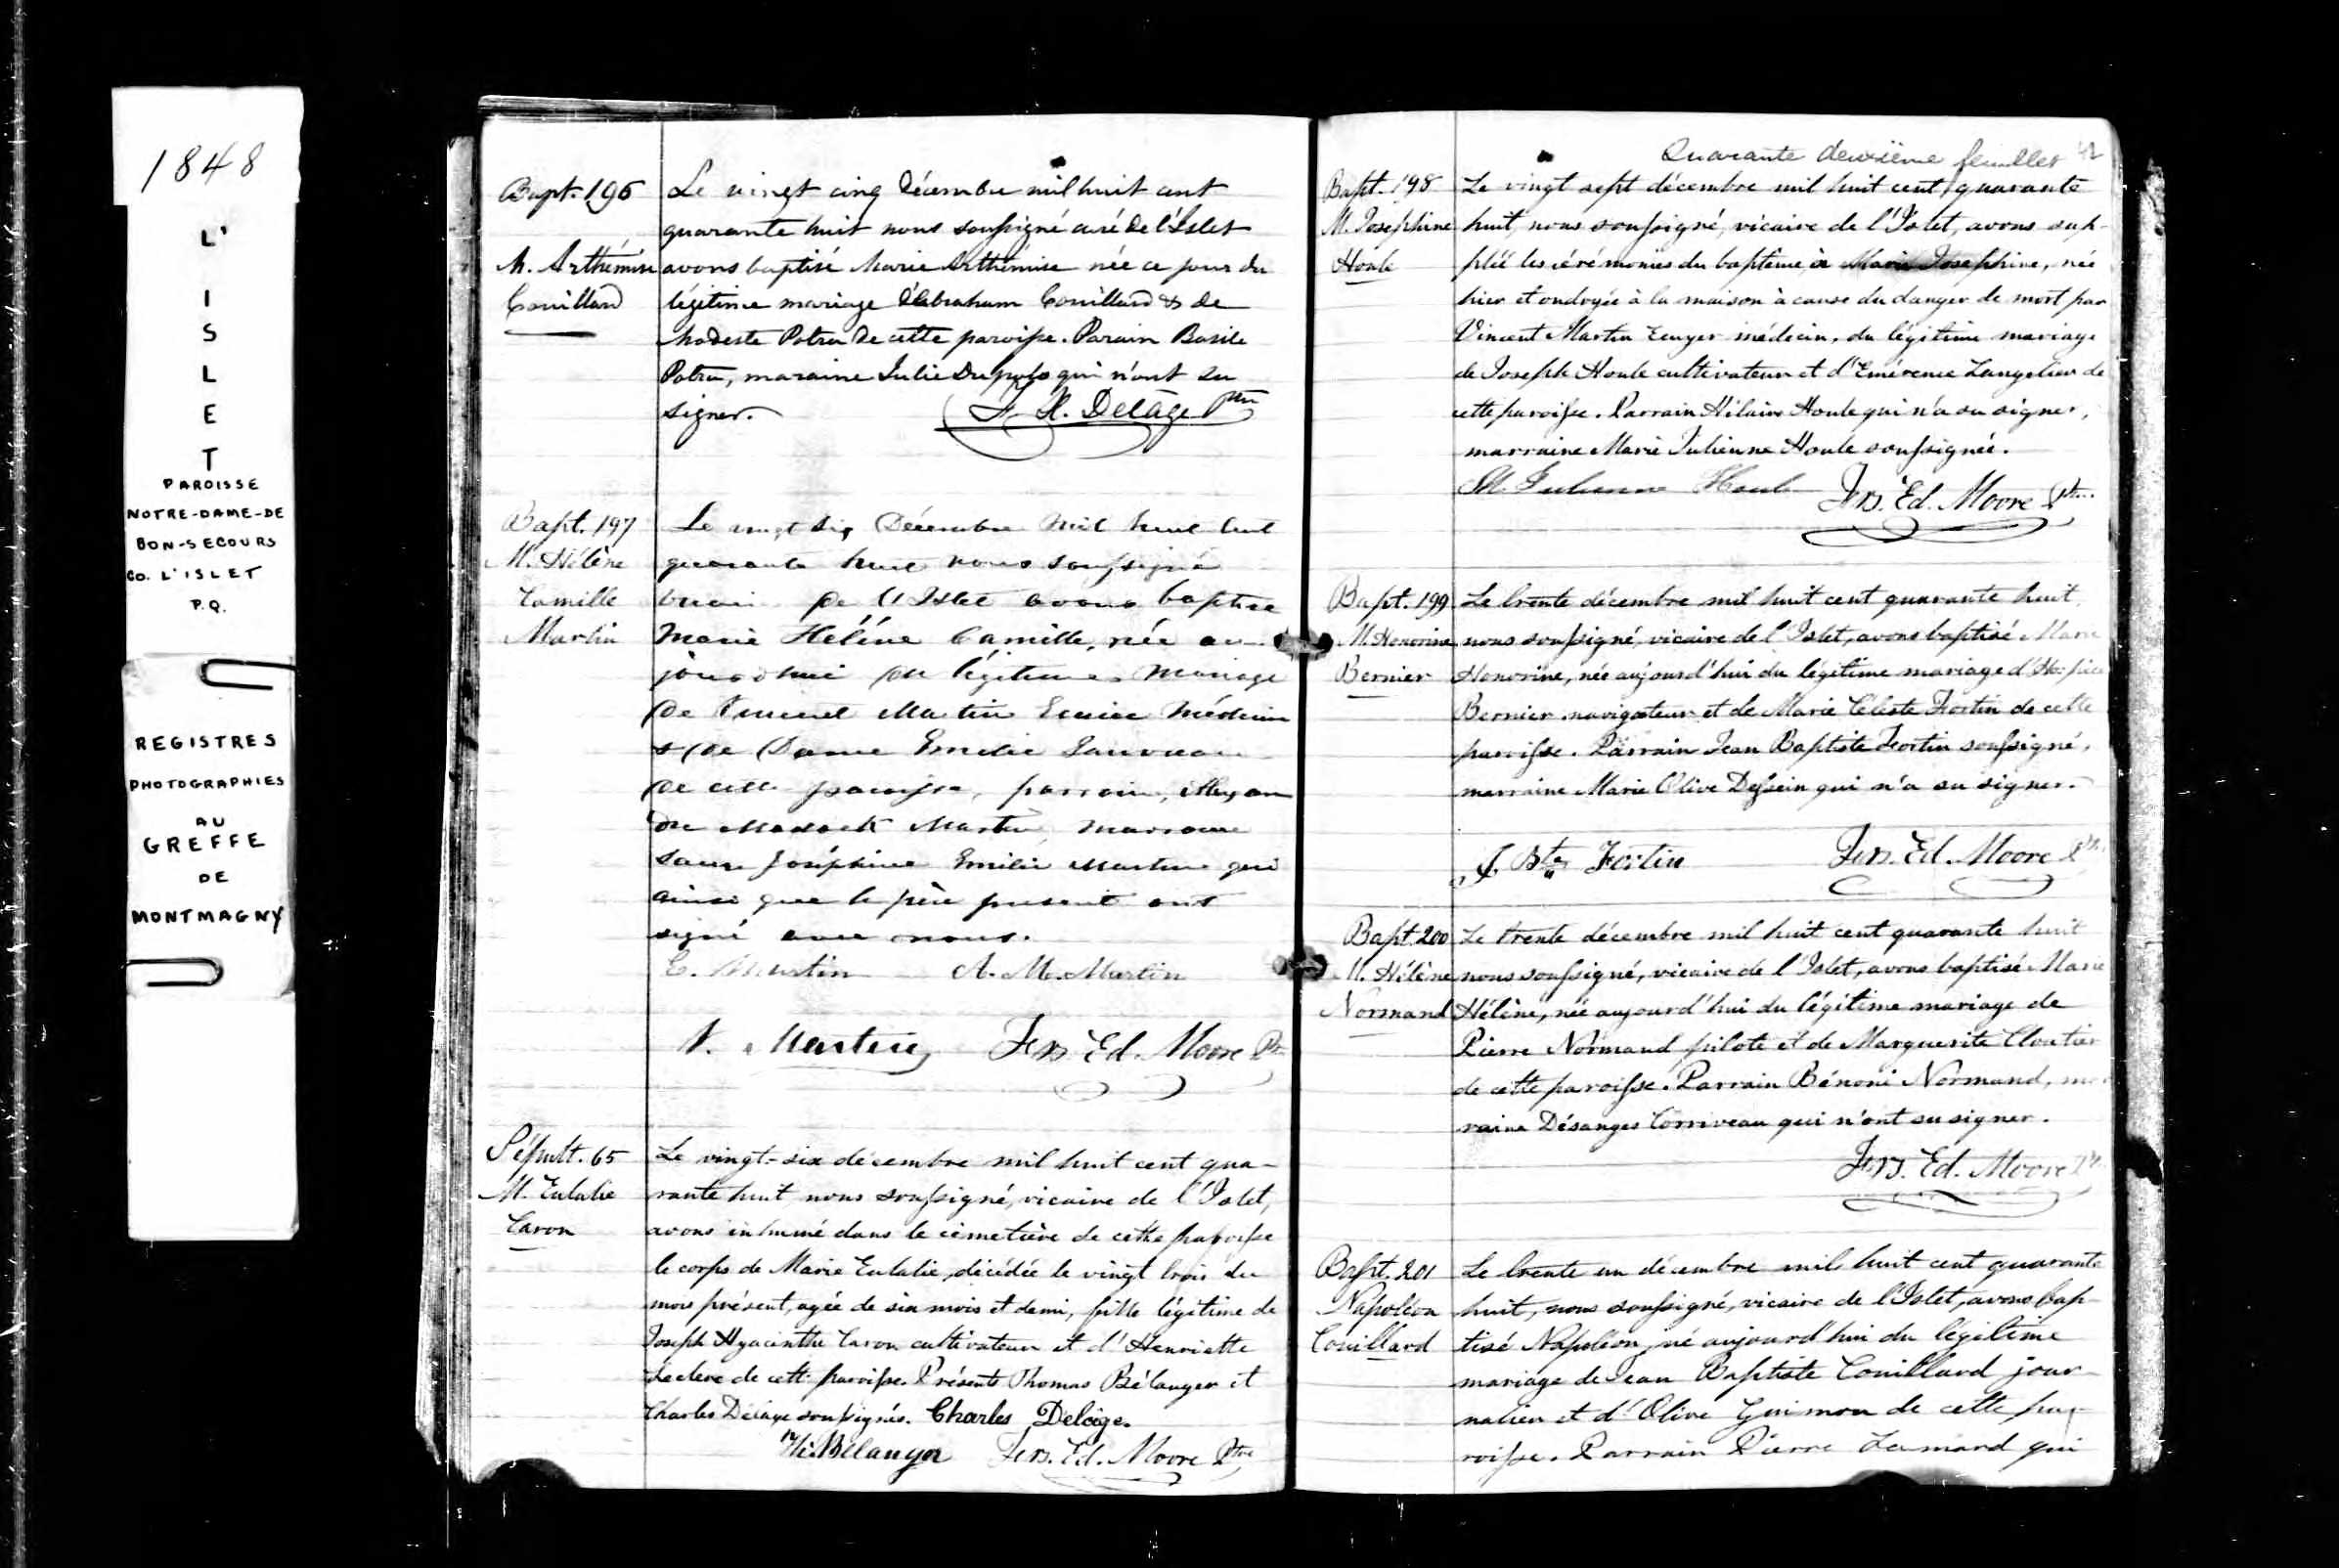 1848
L'
I
S
L
E
T
PAROISSE
NOTRE-DAME-DE
BON-SECOURS
CO. L'ISLET
P.Q.
REGISTRES
PHOTOGRAPHIES
AU
GREFFE
DE
MONTMAGNY
Bapt. 196
M. Arthémise
Couillard
Le vingt cinq Décembre mil huit cent
quarante huit nous soussigné curé de l'Islet
avons baptisé Marie Arthémise née ce jour du
légitime mariage d'Abraham Couillard & de
Modeste Potra de cette paroisse. Parain Basile
Potra, maraine Julie qui n'ont su
signer. F. X. Delâge Ptre
Bapt. 197
M. Hélène
Camille
Martin
Le vingt six Décembre mil huit cent
quarante huit nous soussigné
vicaire de l'Islet avons baptisé
Marie Hélène Camille, née au
jourd'hui du légitime mariage
de Vincent Martin Ecuier Médecin
& de Dame Emilie
de cette paroisse, parrain, Alexan
dre Martin, marraine
Josephine Emilie Martin qui
ainsi que le père présent ont
signé avec nous.
E. Martin A. M. Martin
V. Martin Frs. Ed. Moore Ptre
Sépult. 65
M. Eulalie
Caron
Le vingt-six décembre mil huit cent qua-
rante huit nous soussigné, vicaire de l'Islet,
avons inhumé dans le cimetière de cette paroisse
le corps de Marie Eulalie, décédée le vingt trois du
mois présent, agée de six mois et demi, fille légitime de
Joseph Hyacinthe Caron cultivateur et d'Henriette
Leclerc de cette paroisse. Présents Thomas Bélanger et
Charles Délage soussignés. Charles Delâge.
Th. Bélanger Frs. Ed. Moore Ptre
Quarante deuxième feuillet 42
Bapt. 198
M. Josephine
Houle
Le vingt sept décembre mil huit cent quarante
huit, nous soussigné, vicaire de l'Islet, avons sup-
pléé les cérémonies du baptême à Marie Josephine, née
hier et ondoyée à la maison à cause du danger de mort par
Vincent Martin Ecuyer médecin, du légitime mariage
de Joseph Houle cultivateur et d'Emérence Langelier de
cette paroisse. Parrain Hilaire Houle qui n'a su signer,
marraine Marie Julienne Houle soussignée.
M. Julienne Houle Frs. Ed. Moore Ptre
Bapt. 199
M. Honorine
Bernier
Le trente décembre mil huit cent quarante huit,
nous soussigné, vicaire de l'Islet, avons baptisé Marie
Honorine, née aujourd'hui du légitime mariage d'Hospice
Bernier navigateur et de Marie Céleste Fortin de cette
paroisse. Parrain Jean Baptiste Fortin soussigné,
marraine Marie Olive Dessein qui n'a su signer.
J. Bte Fortin Frs. Ed. Moore Ptre
Bapt. 200
M. Hélène
Normand
Le trente décembre mil huit cent quarante huit
nous soussigné, vicaire de l'Islet, avons baptisé Marie
Hélène, née aujourd'hui du légitime mariage de
Pierre Normand pilote et de Marguerite Cloutier
de cette paroisse. Parrain Bénoni Normand, mar
raine Désanges Corriveau qui n'ont su signer.
Frs. Ed. Moore Ptre
Bapt. 201
Napoléon
Couillard
Le trente un décembre mil huit cent quarante
huit, nous soussigné, vicaire de l'Islet, avons bap-
tisé Napoléon, né aujourd'hui du légitime
mariage de Jean Baptiste Couillard jour-
nalier et d'Olive Guimon de cette pa-
roisse. Parrain Pierre qui